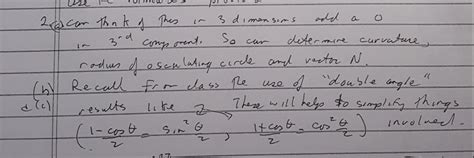 use the formulas
2 (a) can think of this in 3 dimensions add a 0
in 3-rd component. So can determine curvature,
radius of osculating circle and vector N.
(b) Recall from class the use of "double angle"
& (c) results like 2 These will help to simplify things
(1-cosθ/2 = sin²θ/2, 1+cosθ/2 = cos²θ/2) involved.